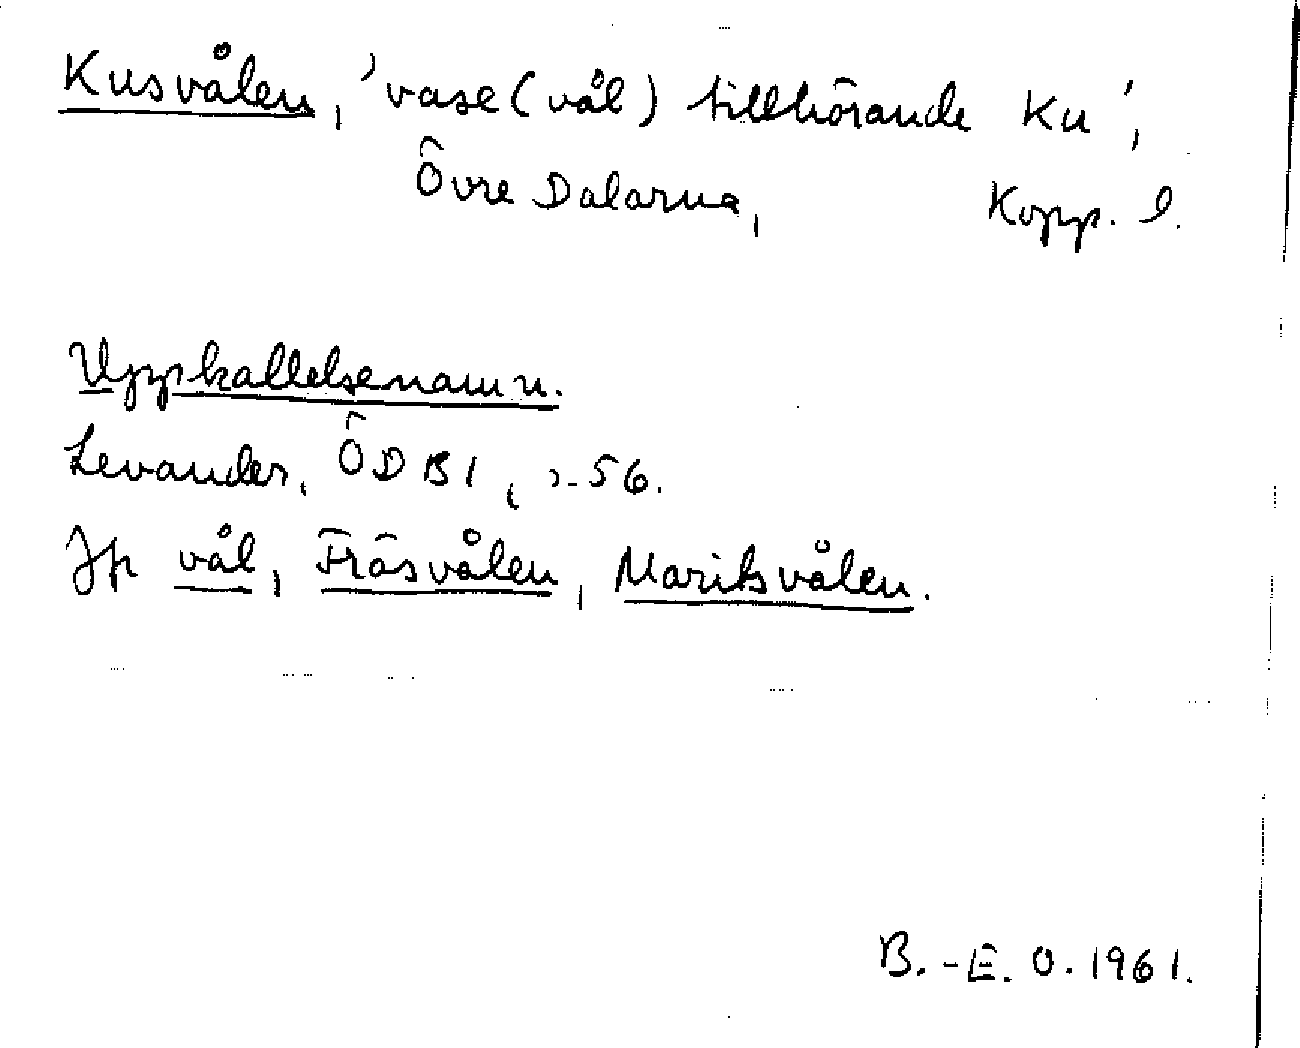 Kusvålen, 'vase (vål) tillhörande Ku',
Övre Dalarna, Kopp. l.
Uppkallelsenamn.
Levander, ÖDB 1, s. 56.
Jfr vål, Fräsvålen, Maritsvålen.
B.-E. O. 1961.